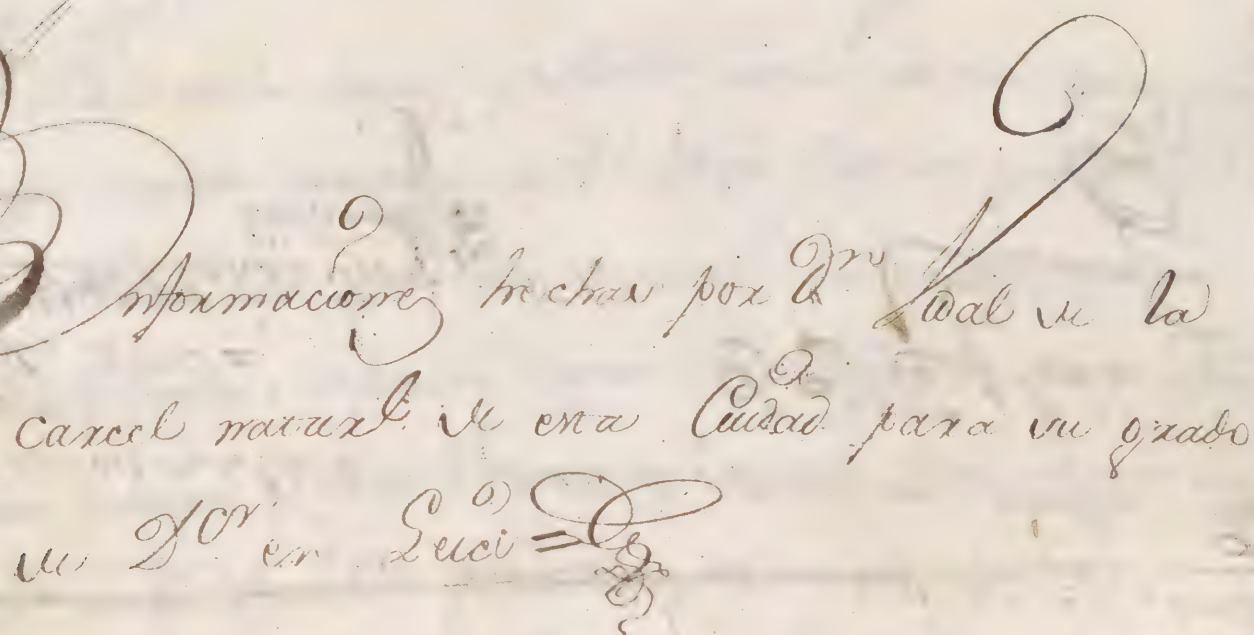 Informaciones hechas por Dn Vidal de la
Carcel natural de esta Ciudad para su grado
de Dor en